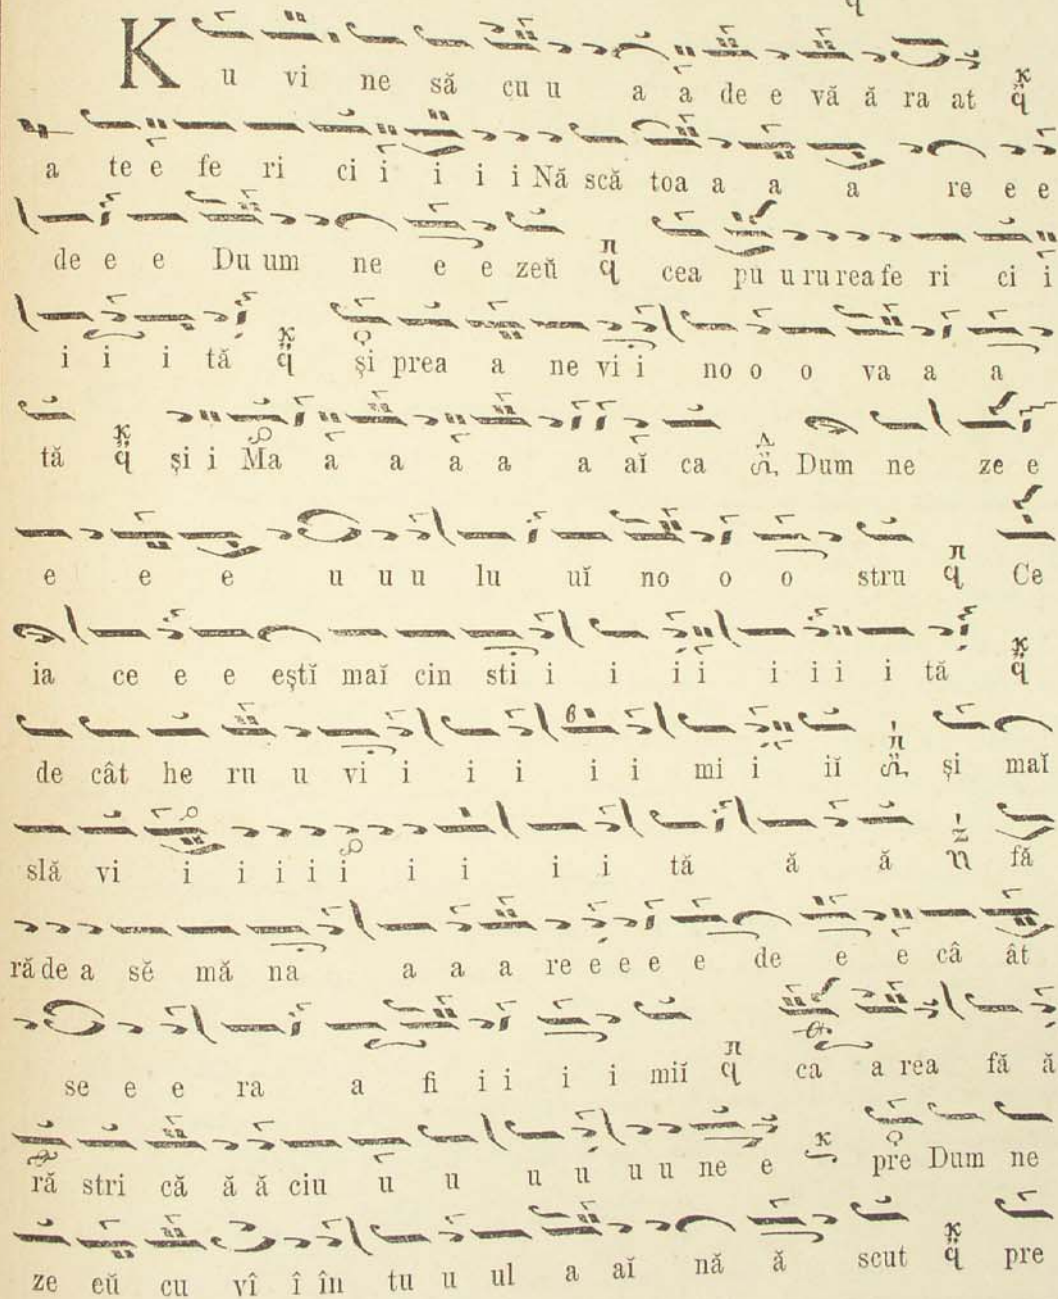 K u vi ne să cu u a a de e vă ă ra at
a te e fe ri ci i i i i Nă scă toa a a a re e e
de e e Du um ne e e zeŭ cea pu u ru rea fe ri ci i
i i i tă și prea a ne vi i no o o va a a
tă și i Ma a a a a a aĭ ca Dum ne ze e
e e e u u u lu uĭ no o o stru Ce
ia ce e e eștĭ maĭ cin sti i i i i i i i i tă
de cât he ru u vi i i i i i mi i iĭ și maĭ
slă vi i i i i i i i i i tă ă ă fă
ră de a sĕ mă na a a a re e e e e de e e câ ât
se e e ra a fi i i i i miĭ ca a rea fă ă
ră stri că ă ă ciu u u u u u u ne e pre Dum ne
ze eŭ cu vî î în tu u ul a aĭ nă ă scut pre